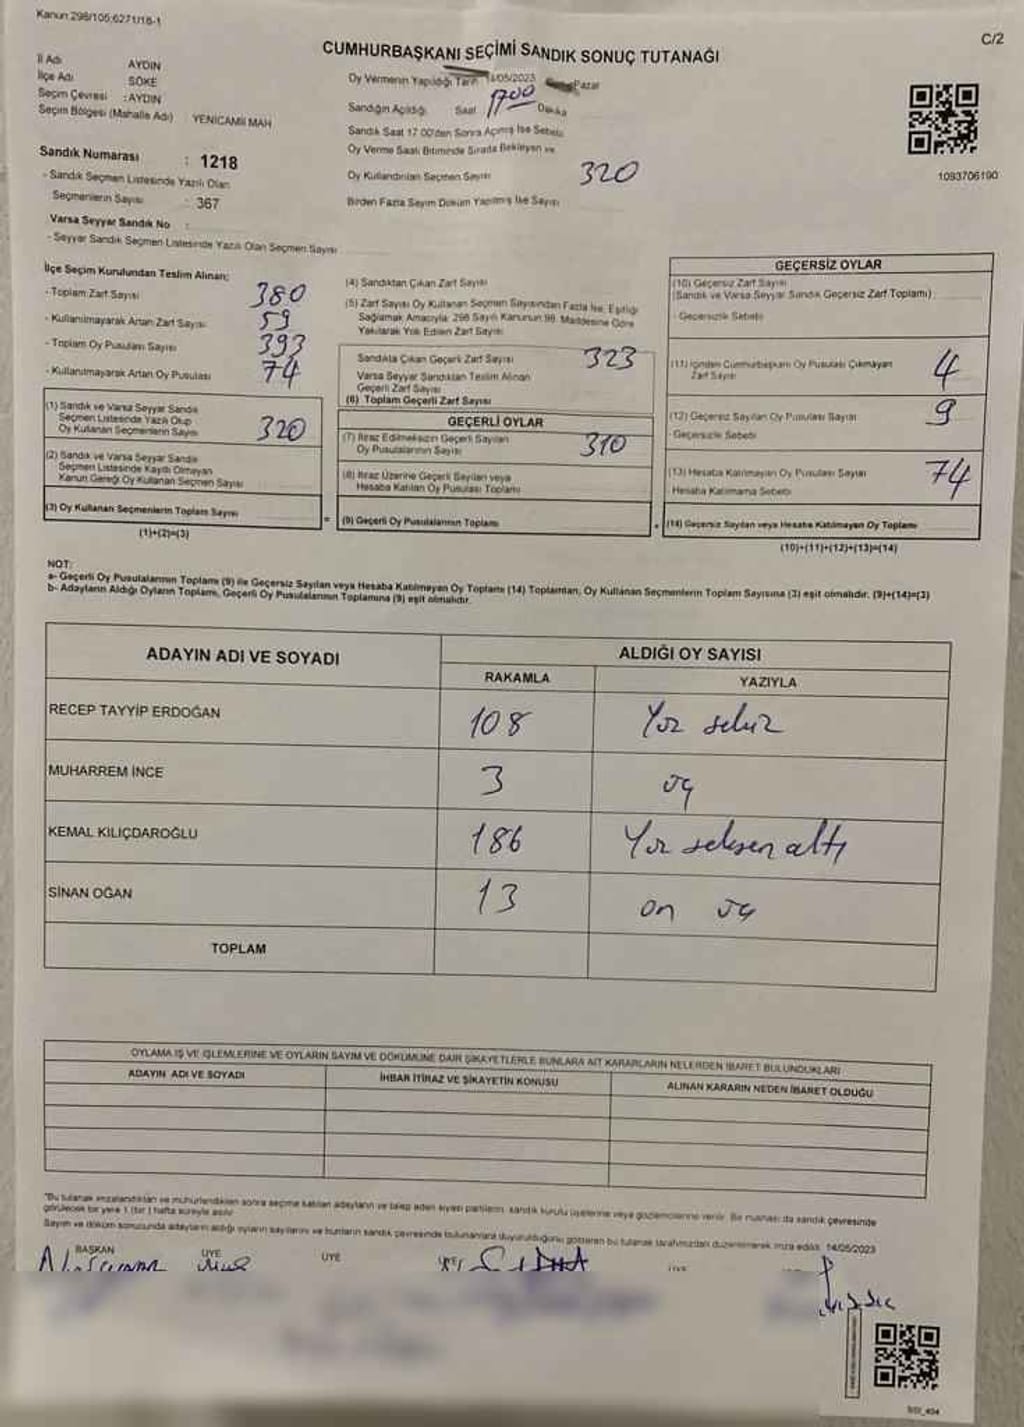 Kanun:298/105;6271/18-1
C/2
CUMHURBAŞKANI SEÇİMİ SANDIK SONUÇ TUTANAĞI
İl Adı AYDIN
İlçe Adı SÖKE
Seçim Çevresi : AYDIN
Seçim Bölgesi (Mahalle Adı) YENİCAMİİ MAH
Oy Vermenin Yapıldığı Tarih 14/05/2023 Pazar
Sandığın Açıldığı Saat 1700 Dakika
Sandık Saat 17.00'den Sonra Açılmış İse Sebebi
Oy Verme Saati Bitiminde Sırada Bekleyen ve
Oy Kullandırılan Seçmen Sayısı 320
Birden Fazla Sayım Döküm Yapılmış İse Sayısı
1093706190
Sandık Numarası : 1218
- Sandık Seçmen Listesinde Yazılı Olan
Seçmenlerin Sayısı : 367
Varsa Seyyar Sandık No :
- Seyyar Sandık Seçmen Listesinde Yazılı Olan Seçmen Sayısı
İlçe Seçim Kurulundan Teslim Alınan:
- Toplam Zarf Sayısı 380
- Kullanılmayarak Artan Zarf Sayısı 59
- Toplam Oy Pusulası Sayısı 393
- Kullanılmayarak Artan Oy Pusulası 74
(1) Sandık ve Varsa Seyyar Sandık
Seçmen Listesinde Yazılı Olup
Oy Kullanan Seçmenlerin Sayısı 320
(2) Sandık ve Varsa Seyyar Sandık
Seçmen Listesinde Kayıtlı Olmayan
Kanun Gereği Oy Kullanan Seçmen Sayısı
(3) Oy Kullanan Seçmenlerin Toplam Sayısı
(1)+(2)=(3)
(4) Sandıktan Çıkan Zarf Sayısı
(5) Zarf Sayısı Oy Kullanan Seçmen Sayısından Fazla İse, Eşitliği
Sağlamak Amacıyla; 298 Sayılı Kanunun 98. Maddesine Göre
Yakılarak Yok Edilen Zarf Sayısı
Sandıkta Çıkan Geçerli Zarf Sayısı 323
Varsa Seyyar Sandıktan Teslim Alınan
Geçerli Zarf Sayısı
(6) Toplam Geçerli Zarf Sayısı
GEÇERLİ OYLAR
(7) İtiraz Edilmeksizin Geçerli Sayılan
Oy Pusulalarının Sayısı 310
(8) İtiraz Üzerine Geçerli Sayılan veya
Hesaba Katılan Oy Pusulası Toplamı
= (9) Geçerli Oy Pusulalarının Toplamı
GEÇERSİZ OYLAR
(10) Geçersiz Zarf Sayısı
(Sandık ve Varsa Seyyar Sandık Geçersiz Zarf Toplamı)
- Geçersizlik Sebebi
(11) İçinden Cumhurbaşkanı Oy Pusulası Çıkmayan
Zarf Sayısı 4
(12) Geçersiz Sayılan Oy Pusulası Sayısı 9
- Geçersizlik Sebebi
(13) Hesaba Katılmayan Oy Pusulası Sayısı 74
Hesaba Katılmama Sebebi
+ (14) Geçersiz Sayılan veya Hesaba Katılmayan Oy Toplamı
(10)+(11)+(12)+(13)=(14)
NOT:
a- Geçerli Oy Pusulalarının Toplamı (9) ile Geçersiz Sayılan veya Hesaba Katılmayan Oy Toplamı (14) Toplamları, Oy Kullanan Seçmenlerin Toplam Sayısına (3) eşit olmalıdır. (9)+(14)=(3)
b- Adayların Aldığı Oyların Toplamı, Geçerli Oy Pusulalarının Toplamına (9) eşit olmalıdır.
ADAYIN ADI VE SOYADI
ALDIĞI OY SAYISI
RAKAMLA YAZIYLA
RECEP TAYYİP ERDOĞAN 108 Yüz sekiz
MUHARREM İNCE 3 üç
KEMAL KILIÇDAROĞLU 186 Yüz seksen altı
SİNAN OĞAN 13 on üç
TOPLAM
OYLAMA İŞ VE İŞLEMLERİNE VE OYLARIN SAYIM VE DÖKÜMÜNE DAİR ŞİKAYETLERLE BUNLARA AİT KARARLARIN NELERDEN İBARET BULUNDUKLARI
ADAYIN ADI VE SOYADI İHBAR İTİRAZ VE ŞİKAYETİN KONUSU ALINAN KARARIN NEDEN İBARET OLDUĞU
"Bu tutanak imzalandıktan ve mühürlendikten sonra seçime katılan adayların ve talep eden siyasi partilerin, sandık kurulu üyelerine veya gözlemcilerine verilir. Bir nüshası da sandık çevresinde
görülecek bir yere 1 (bir) hafta süreyle asılır.
Sayım ve döküm sonucunda adayların aldığı oyların sayılarını ve bunların sandık çevresinde bulunanlara duyurulduğunu gösteren bu tutanak tarafımızdan düzenlenerek imza edildi. 14/05/2023
BAŞKAN ÜYE ÜYE